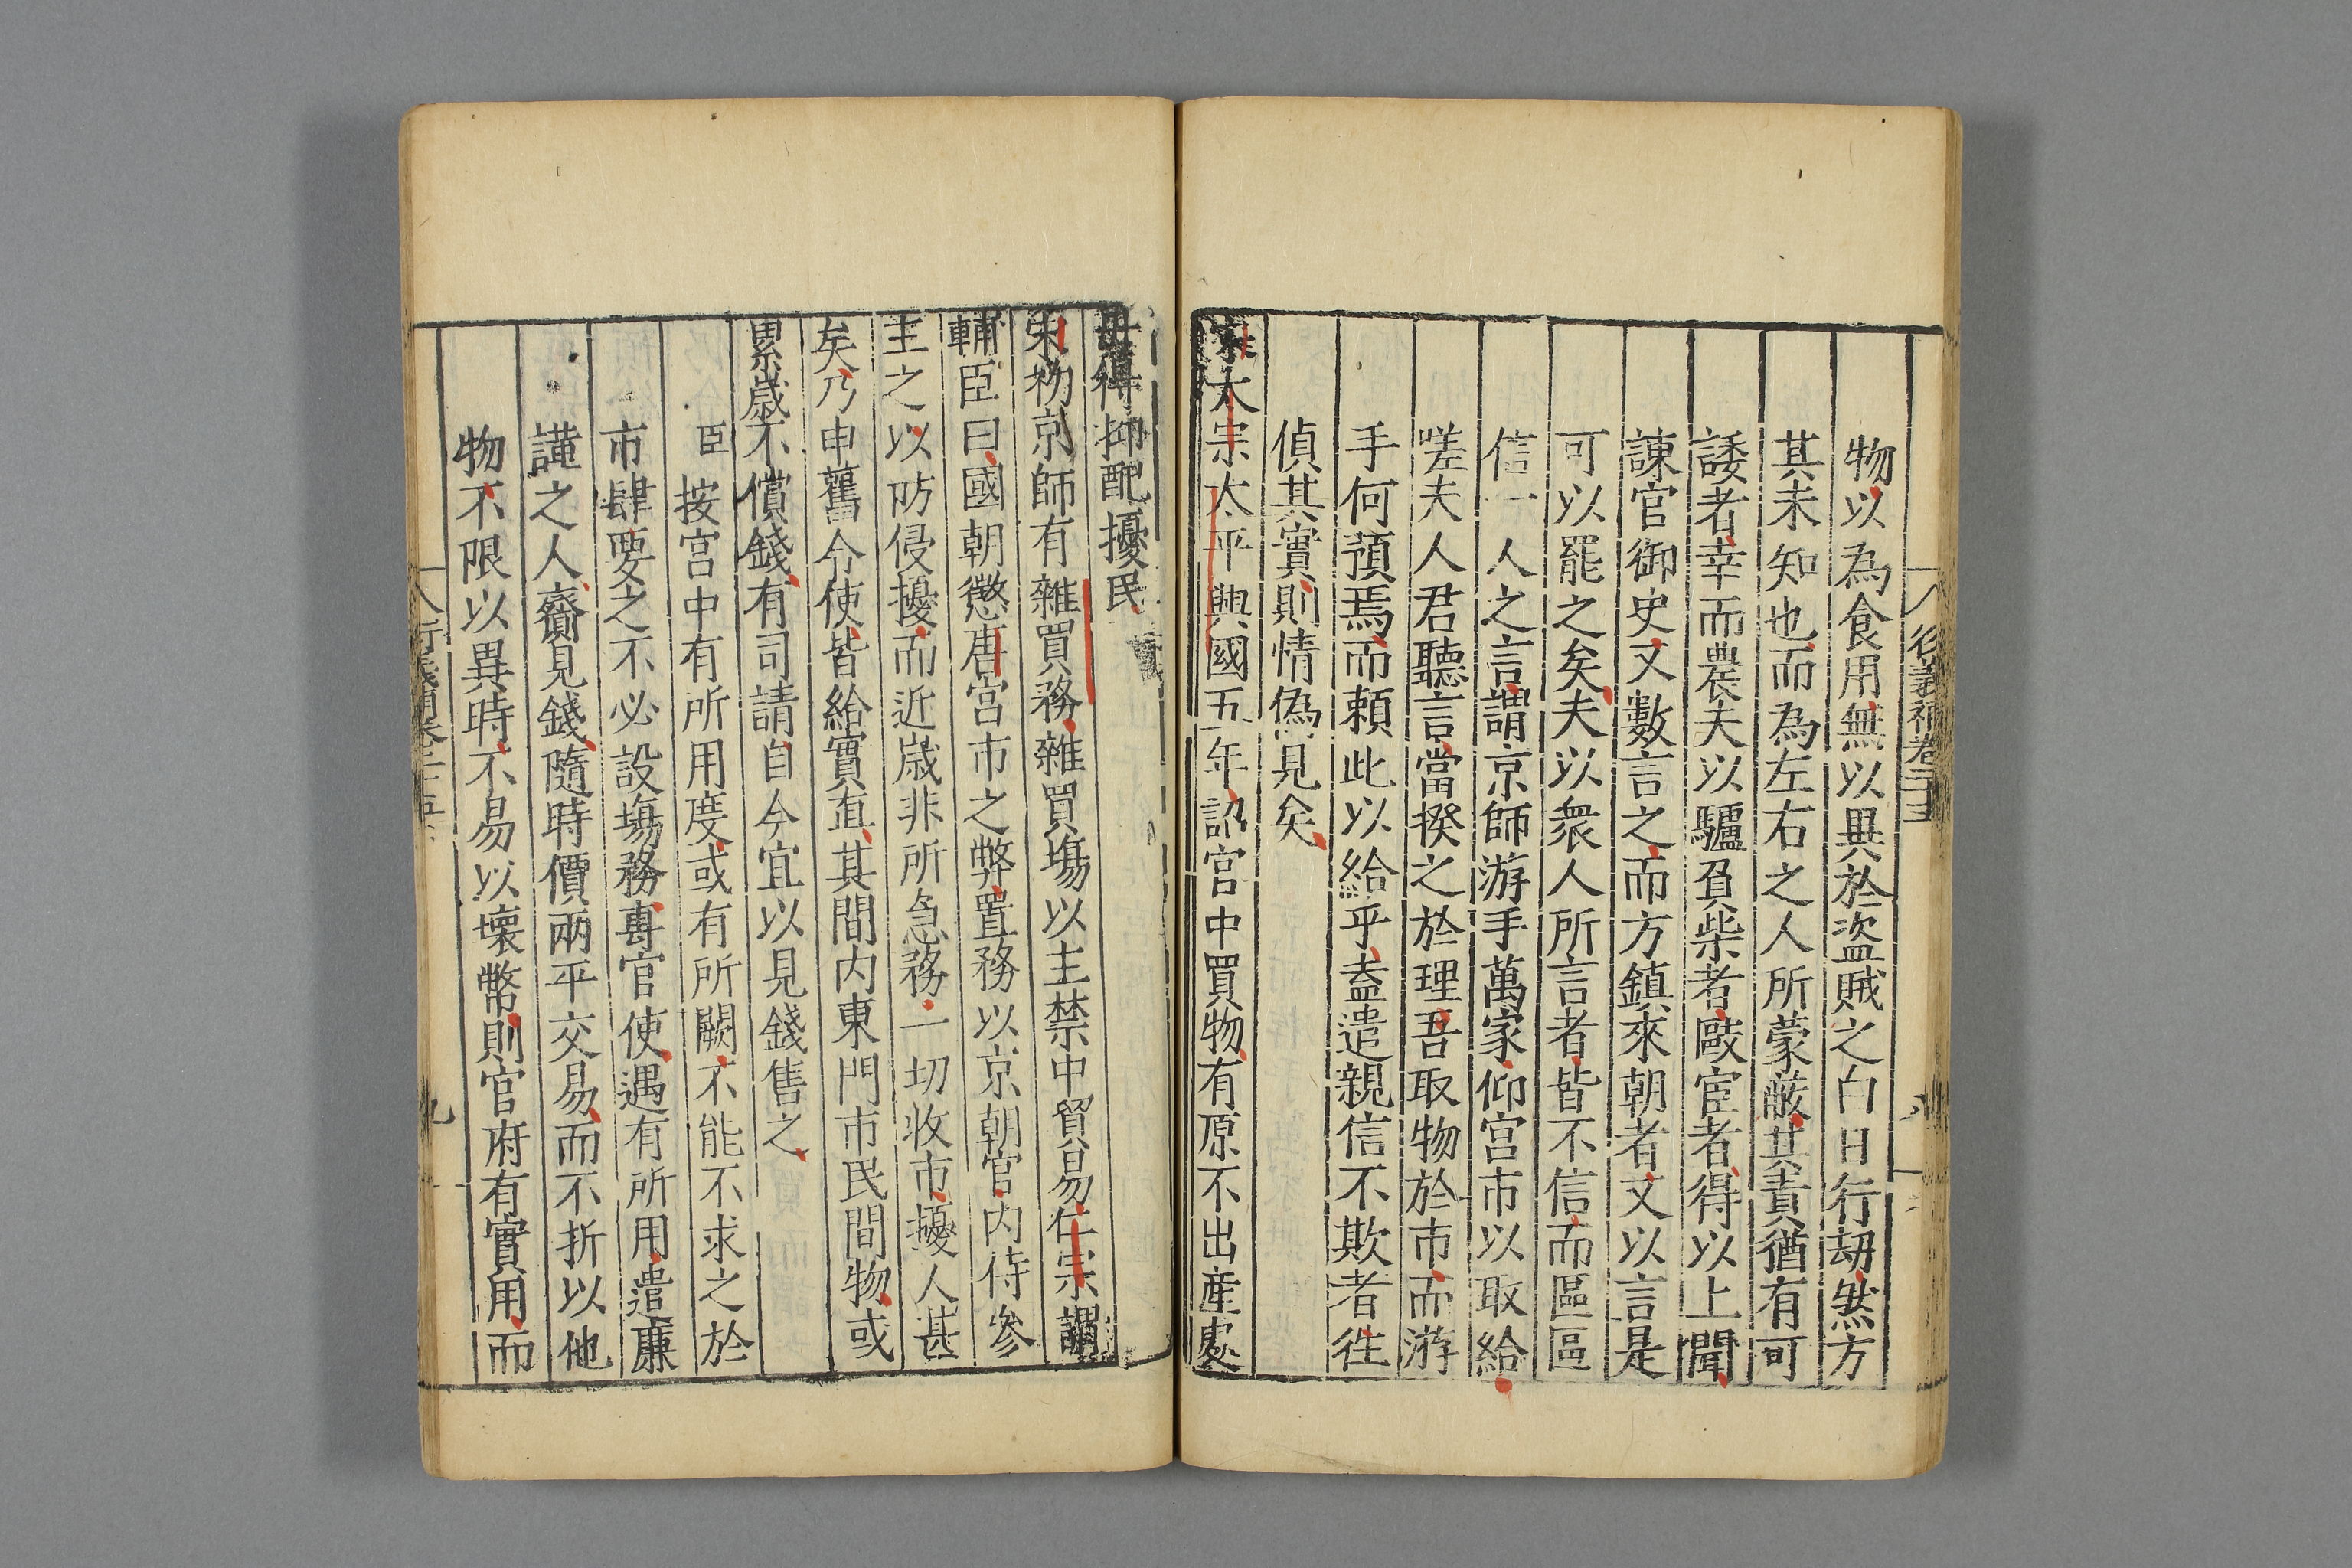 衍義補卷二十五
八
物以為食用無以異於盜賊之白日行刼然方
其未知也而為左右之人所蒙蔽其責猶有可
諉者幸而農夫以驢負柴者敺宦者得以上聞
諫官御史又數言之而方鎮來朝者又以言是
可以罷之矣夫以衆人所言者皆不信而區區
信一人之言謂京師游手萬家仰宮市以取給
嗟夫人君聽言當揆之於理吾取物於市而游
手何預焉而頼此以給乎盍遣親信不欺者徃
偵其實則情偽見矣
宋太宗太平興國五年詔宮中買物有原不出產處
毋得抑配擾民
宋初京師有雜買務雜買塲以主禁中貿易仁宗謂
輔臣曰國朝懲唐宮市之弊置務以京朝官内侍參
主之以防侵擾而近歲非所急務一切收市擾人甚
矣乃申舊令使皆給實直其間内東門市民間物或
累歲不償錢有司請自今宜以見錢售之
臣按宮中有所用度或有所闕不能不求之於
市肆要之不必設塲務專官使遇有所用遣廉
謹之人齎見錢隨時價兩平交易而不折以他
物不限以異時不易以壞幣則官府有實用而
衍義補卷二十五
九